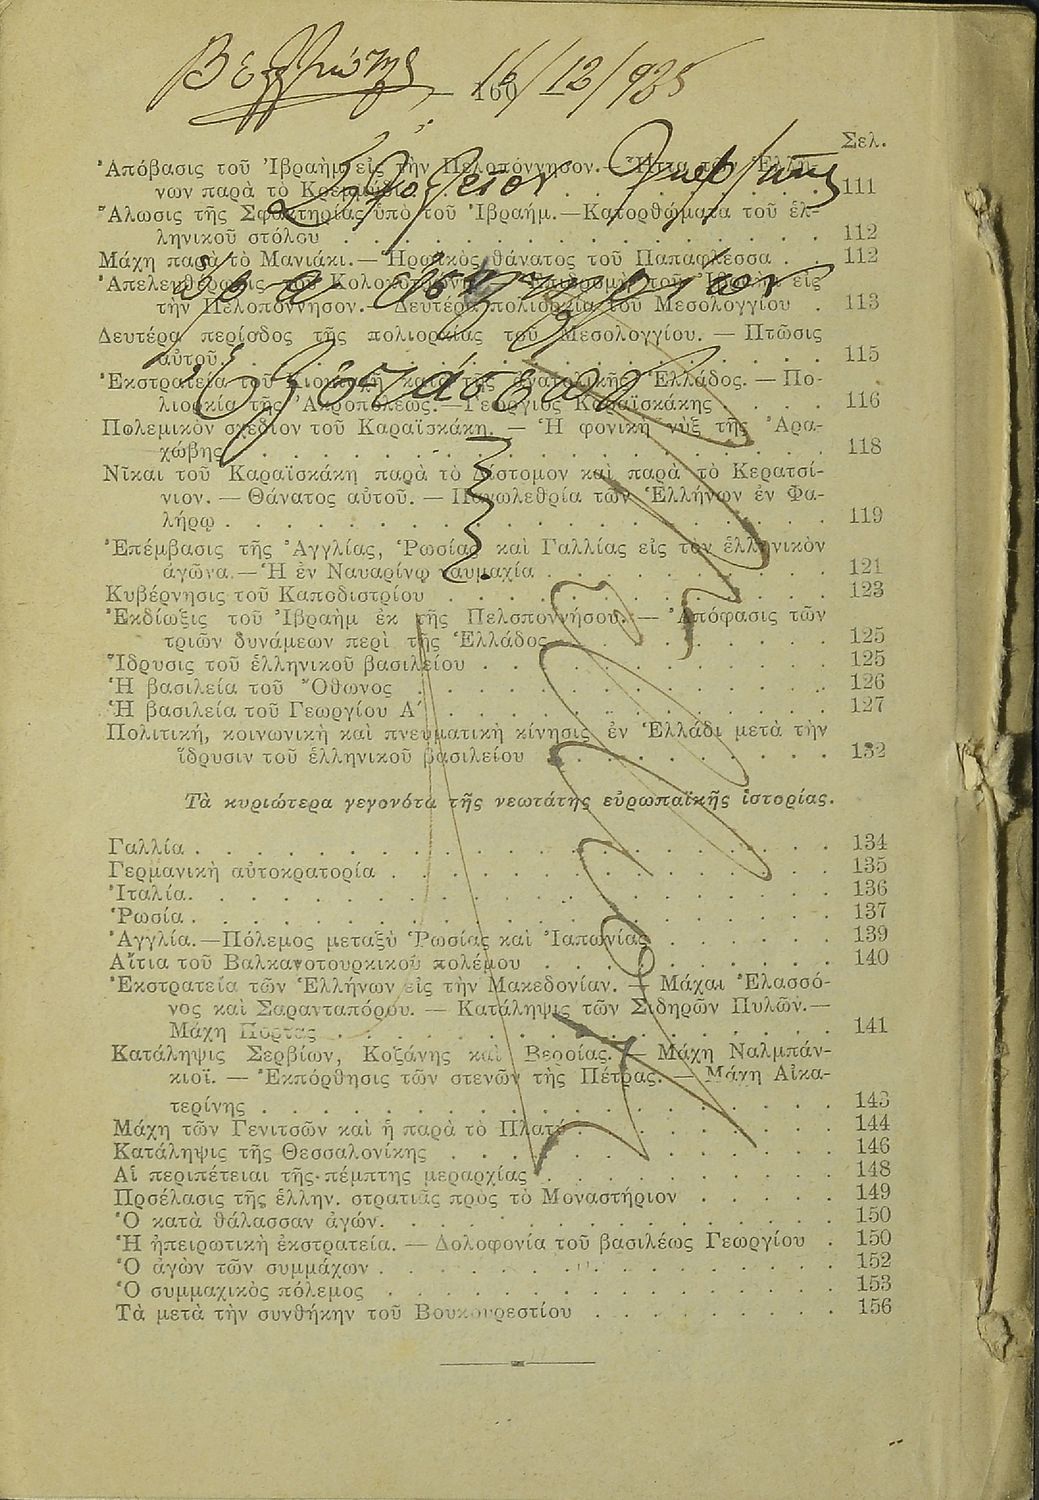 16/12/935
— 160 —
Σελ.
Ἀπόβασις τοῦ Ἰβραὴμ εἰς τὴν Πελοπόννησον.— Ἧττα τῶν Ἑλλή-
νων παρὰ τὸ . . . . . . . . . 111
Ἅλωσις τῆς Σφακτηρίας ὑπὸ τοῦ Ἰβραήμ.—Κατορθώματα τοῦ ἑλ-
ληνικοῦ στόλου . . . . . . . . . . 112
Μάχη παρὰ τὸ Μανιάκι.— Ἡρωϊκὸς θάνατος τοῦ Παπαφλέσσα . . 112
Ἀπελευθέρωσις τοῦ Κολοκοτρώνη.— Ἐπιδρομὴ τοῦ Ἰβραὴμ εἰς
τὴν Πελοπόννησον.— Δευτέρα πολιορκία τοῦ Μεσολογγίου . 113
Δευτέρα περίοδος τῆς πολιορκίας τοῦ Μεσολογγίου. — Πτῶσις
αὐτοῦ. . . . . . . . . . . 115
Ἐκστρατεία τοῦ Κιουταχῆ κατὰ τῆς ἀνατολικῆς Ἑλλάδος. — Πο-
λιορκία τῆς Ἀκροπόλεως.—Γεώργιος Καραϊσκάκης . . . . 116
Πολεμικὸν σχέδιον τοῦ Καραϊσκάκη. — Ἡ φονικὴ νὺξ τῆς Ἀρα-
χώβης . . . . . . . . . . 118
Νῖκαι τοῦ Καραϊσκάκη παρὰ τὸ Δίστομον καὶ παρὰ τὸ Κερατσί-
νιον. — Θάνατος αὐτοῦ. — Πανωλεθρία τῶν Ἑλλήνων ἐν Φα-
λήρῳ . . . . . . . . . . 119
Ἐπέμβασις τῆς Ἀγγλίας, Ῥωσίας καὶ Γαλλίας εἰς τὸν ἑλληνικὸν
ἀγῶνα.—Ἡ ἐν Ναυαρίνῳ ναυμαχία . . . . . . . 121
Κυβέρνησις τοῦ Καποδιστρίου . . . . . . . . . 123
Ἐκδίωξις τοῦ Ἰβραὴμ ἐκ τῆς Πελοποννήσου. — Ἀπόφασις τῶν
τριῶν δυνάμεων περὶ τῆς Ἑλλάδος . . . . . . . 125
Ἵδρυσις τοῦ ἑλληνικοῦ βασιλείου . . . . . . . . 125
Ἡ βασιλεία τοῦ Ὄθωνος . . . . . . . . . . 126
Ἡ βασιλεία τοῦ Γεωργίου Α΄ . . . . . . . . . 127
Πολιτική, κοινωνικὴ καὶ πνευματικὴ κίνησις ἐν Ἑλλάδι μετὰ τὴν
ἵδρυσιν τοῦ ἑλληνικοῦ βασιλείου . . . . . . . 132
Τὰ κυριώτερα γεγονότα τῆς νεωτάτης εὐρωπαϊκῆς ἱστορίας.
Γαλλία . . . . . . . . . . . . . 134
Γερμανικὴ αὐτοκρατορία . . . . . . . . . . 135
Ἰταλία. . . . . . . . . . . . . . 136
Ῥωσία . . . . . . . . . . . . . . 137
Ἀγγλία.—Πόλεμος μεταξὺ Ῥωσίας καὶ Ἰαπωνίας . . . . 139
Αἴτια τοῦ Βαλκανοτουρκικοῦ πολέμου . . . . . . . 140
Ἐκστρατεία τῶν Ἑλλήνων εἰς τὴν Μακεδονίαν. — Μάχαι Ἐλασσό-
νος καὶ Σαρανταπόρου. — Κατάληψις τῶν Σιδηρῶν Πυλῶν.—
Μάχη Πόρτας . . . . . . . . . . . 141
Κατάληψις Σερβίων, Κοζάνης καὶ Βεροίας. — Μάχη Ναλμπάν-
κιοϊ. — Ἐκπόρθησις τῶν στενῶν τῆς Πέτρας. — Μάχη Αἰκα-
τερίνης . . . . . . . . . . . . 143
Μάχη τῶν Γενιτσῶν καὶ ἡ παρὰ τὸ Πλατύ . . . . . . 144
Κατάληψις τῆς Θεσσαλονίκης . . . . . . . . . 146
Αἱ περιπέτειαι τῆς πέμπτης μεραρχίας . . . . . . . 148
Προέλασις τῆς ἑλλην. στρατιᾶς πρὸς τὸ Μοναστήριον . . . . 149
Ὁ κατὰ θάλασσαν ἀγών. . . . . . . . . . . 150
Ἡ ἠπειρωτικὴ ἐκστρατεία. — Δολοφονία τοῦ βασιλέως Γεωργίου . 150
Ὁ ἀγὼν τῶν συμμάχων . . . . . . . . . . 152
Ὁ συμμαχικὸς πόλεμος . . . . . . . . . . 153
Τὰ μετὰ τὴν συνθήκην τοῦ Βουκουρεστίου . . . . . . 156